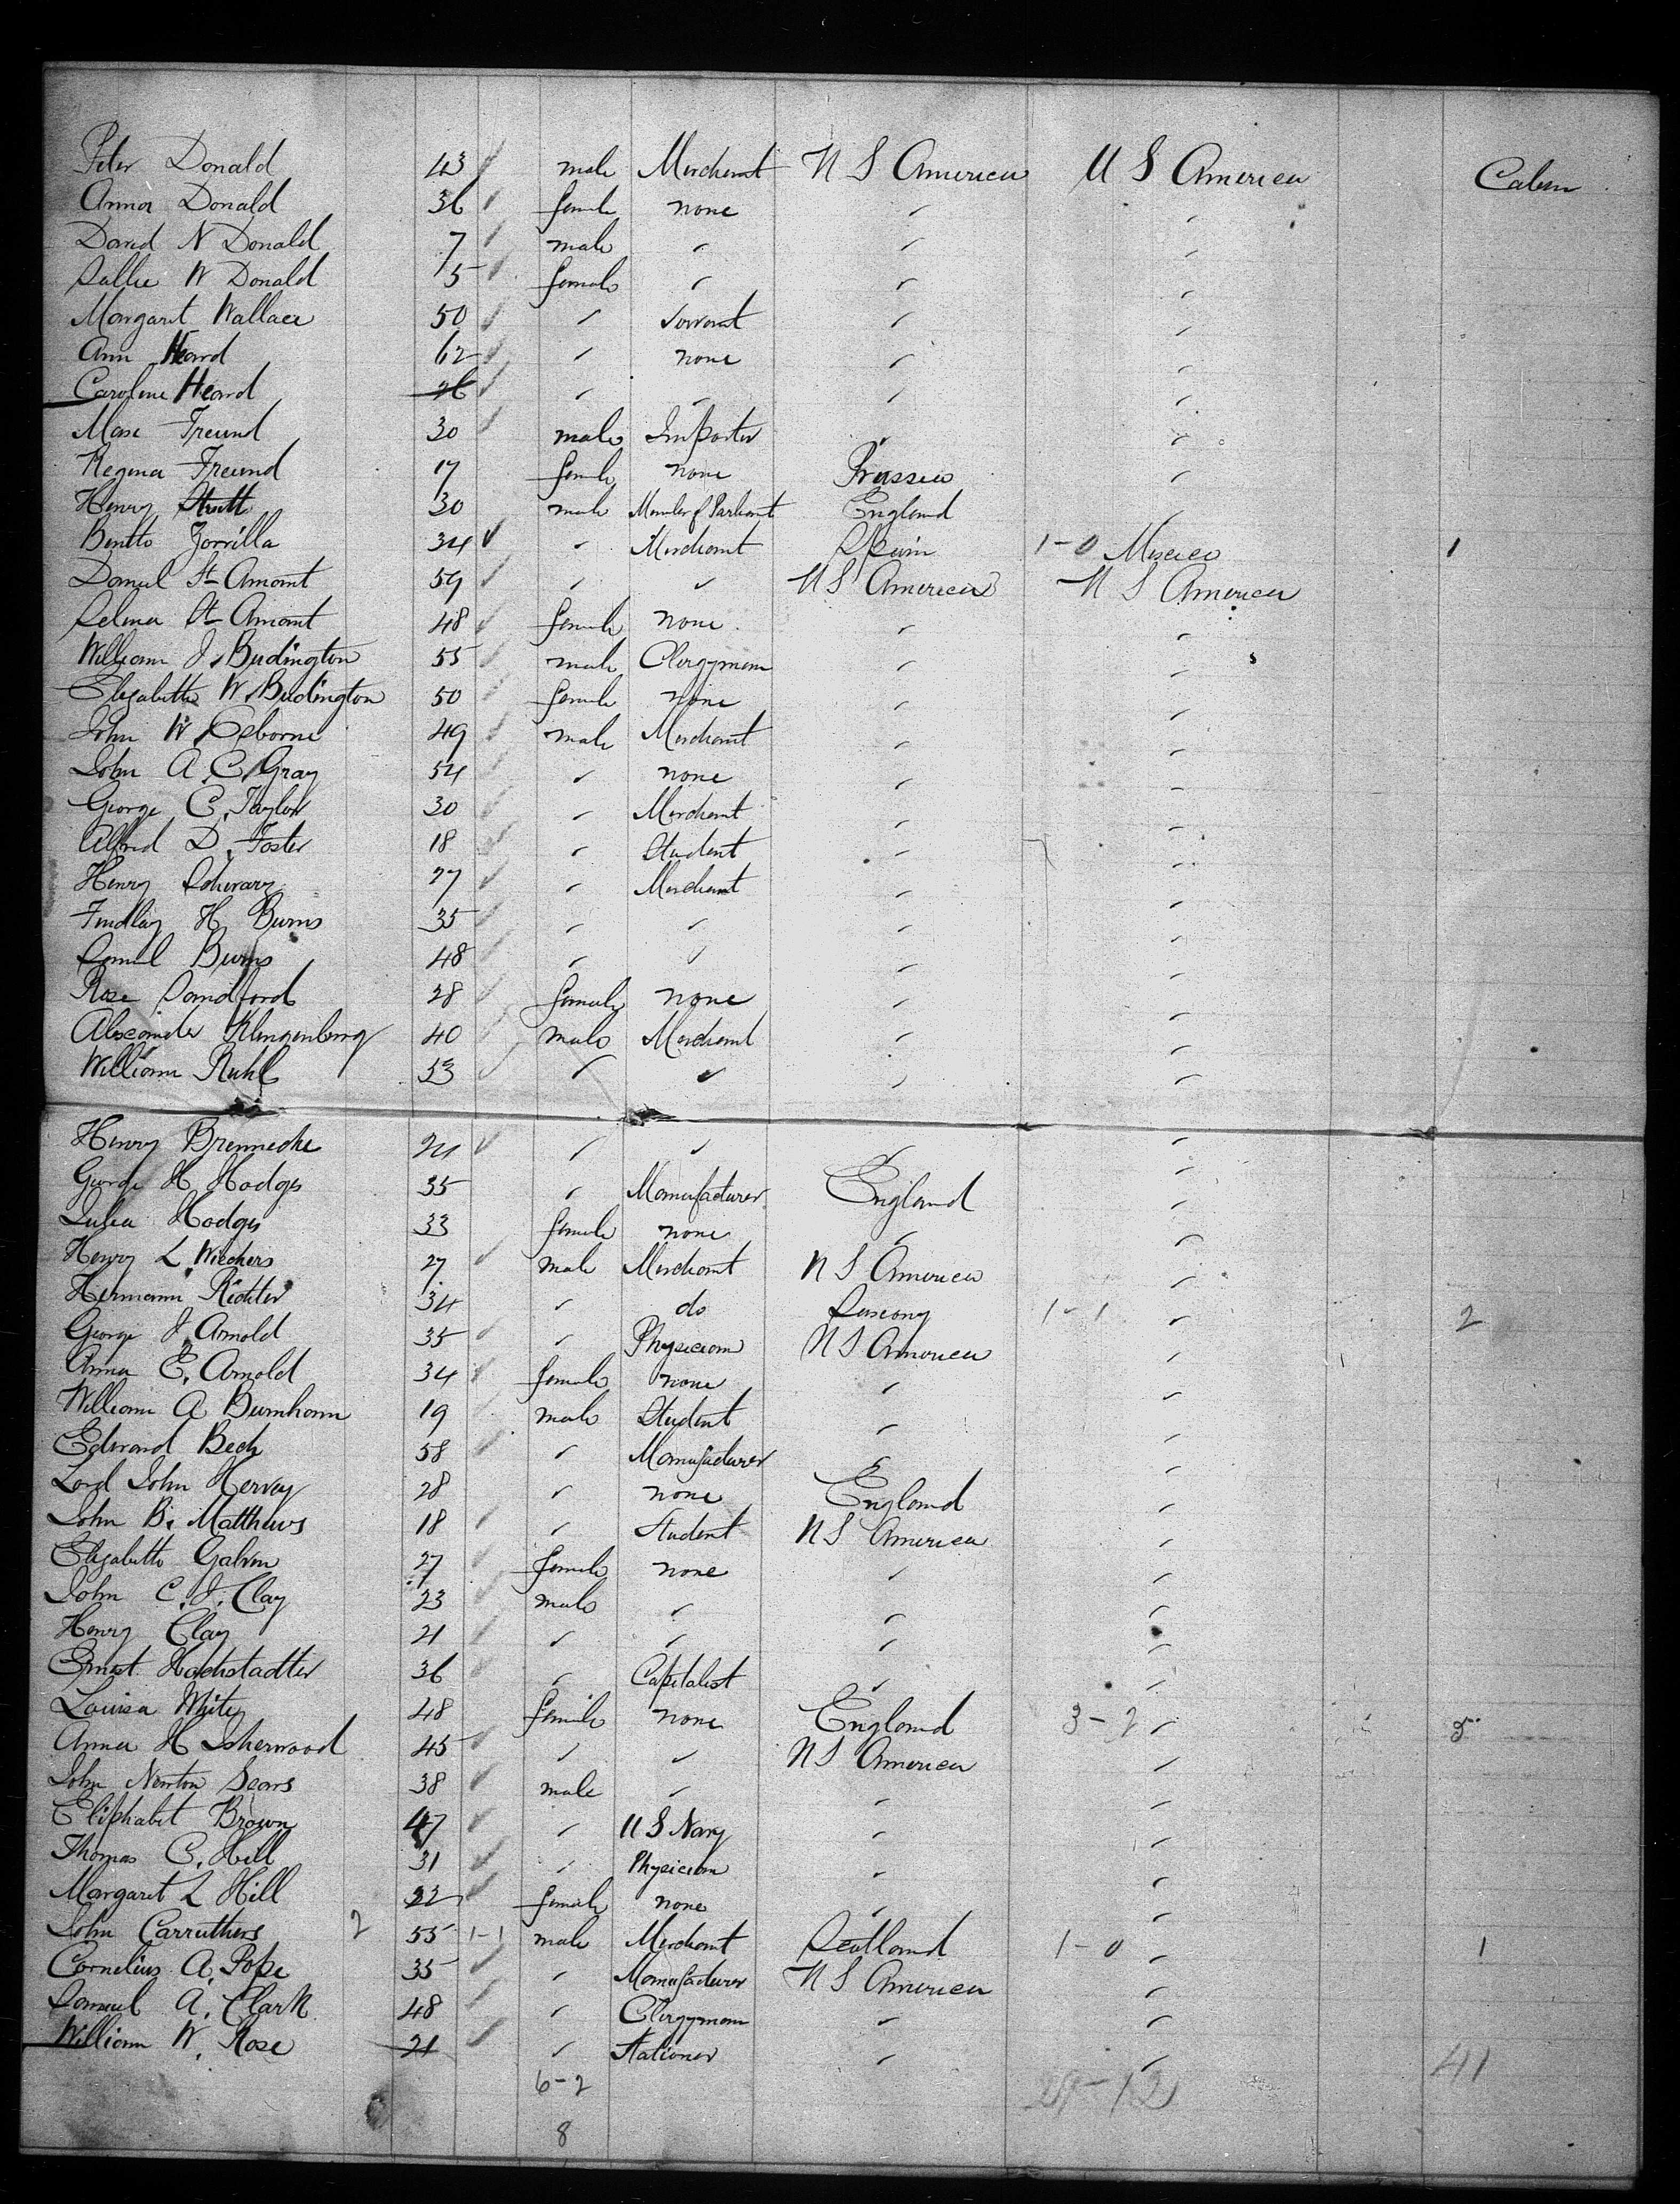 Peter Donald 43 male Merchant U S America U S America Cabin
Anna Donald 36 female none " "
David N Donald 7 male " " "
Sallie W Donald 5 female " " "
Margaret Wallace 50 " Servant " "
Ann Heard 62 " none " "
Caroline Heard 26 " " " "
Max Freund 30 male Importer " "
Regina Freund 17 female none Prussia "
Henry Strutt 30 male Member of Parliament England "
Benito Zorrilla 34 " Merchant Spain 1-0 Mexico 1
Daniel St Amant 59 " " U S America U S America
Selma St Amant 48 female none " "
William I. Budington 55 male Clergyman " "
Elizabeth W. Budington 50 female none " "
John W. Osborne 49 male Merchant " "
John A. C. Gray 54 " none " "
George C. Taylor 30 " Merchant " "
Alfred D. Foster 18 " Student " "
Henry Schwarz 27 " Merchant " "
Findlay H. Burns 35 " " " "
Samuel Burns 48 " " " "
Rose Sandford 28 female none " "
Alexander Klingenberg 40 male Merchant " "
William Ruhl 53 " " " "
Henry Brennecke 24 " " " "
George H. Hodges 35 " Manufacturer England "
Julia Hodges 33 female none " "
Henry L. Wiechers 27 male Merchant U S America "
Hermann Richter 34 " do Saxony 1-1 " 2
George J. Arnold 35 " Physician U S America "
Anna E. Arnold 34 female none " "
William A. Burnham 19 male Student " "
Edward Beck 58 " Manufacturer " "
Lord John Hervey 28 " none England "
John B. Matthews 18 " Student U S America "
Elizabeth Galvin 27 female none " "
John C. J. Clay 23 male " " "
Henry Clay 21 " " " "
Ernst Hochstadter 36 " Capitalist " "
Louisa White 48 female none England 3-2 " 5
Anna H Isherwood 45 " " U S America "
John Newton Sears 38 male " " "
Eliphabet Brown 47 " U S Navy " "
Thomas C. Hill 31 " Physician " "
Margaret L Hill 22 female none " "
John Carruthers 2 55 1-1 male Merchant Scotland 1-0 " 1
Cornelius A. Pope 35 " Manufacturer U S America "
Samuel A. Clark 48 " Clergyman " "
William W. Rose 21 " Stationer " "
6-2 41
8